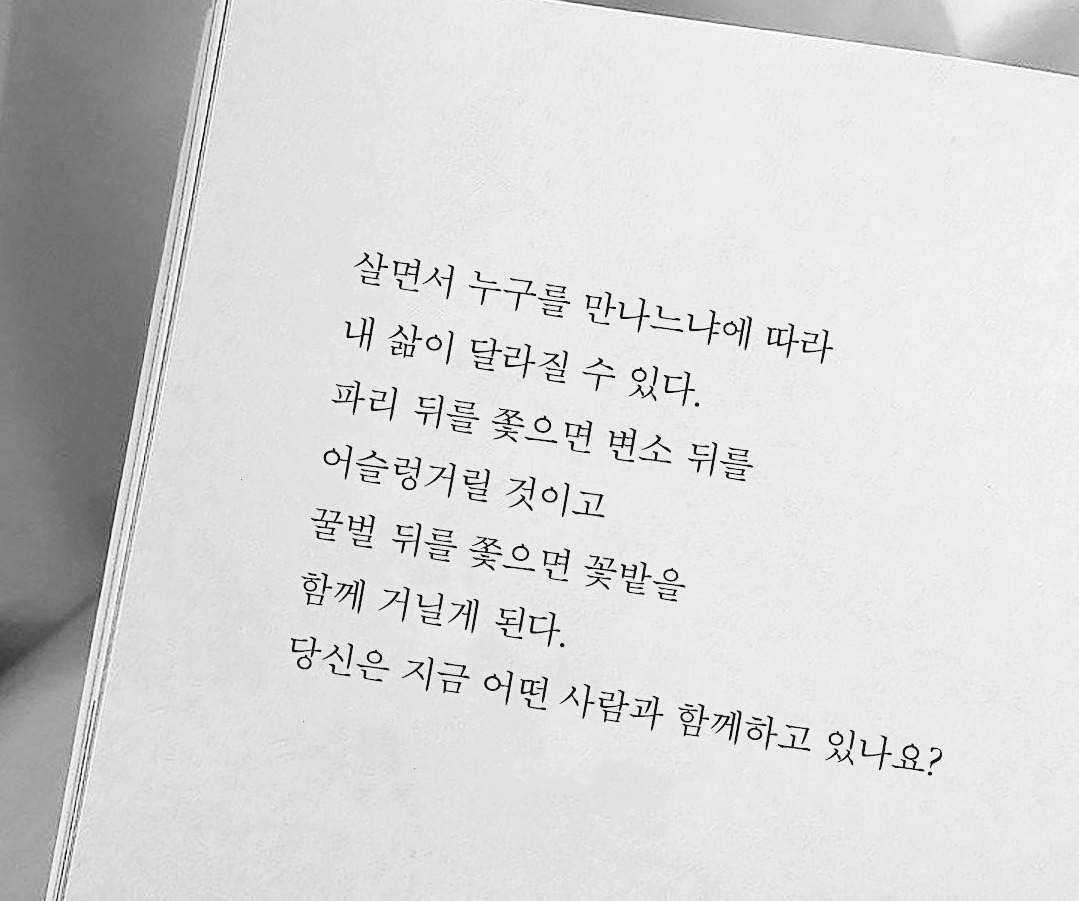 살면서 누구를 만나느냐에 따라
내 삶이 달라질 수 있다.
파리 뒤를 쫓으면 변소 뒤를
어슬렁거릴 것이고
꿀벌 뒤를 쫓으면 꽃밭을
함께 거닐게 된다.
당신은 지금 어떤 사람과 함께하고 있나요?